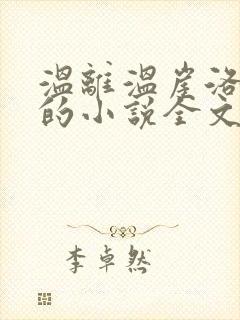 温離温崖洛
的小説全文
李卓然